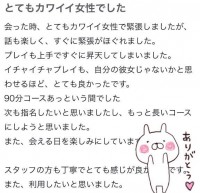 とてもカワイイ女性でした
会った時、とてもカワイイ女性で緊張しましたが、
話も楽しく、すぐに緊張がほぐれました。
プレイも上手ですぐに昇天してしまいました。
イチャイチャプレイも、自分の彼女じゃないかと思
わせるほど、とても良かったです。
90分コースあっという間でした
次も指名したいと思いましたし、もっと長いコース
にしようと思いました。
また、会える日を楽しみにしています
スタッフの方も丁寧でとても感じが良か
また、利用したいと思いました。
ありがとう